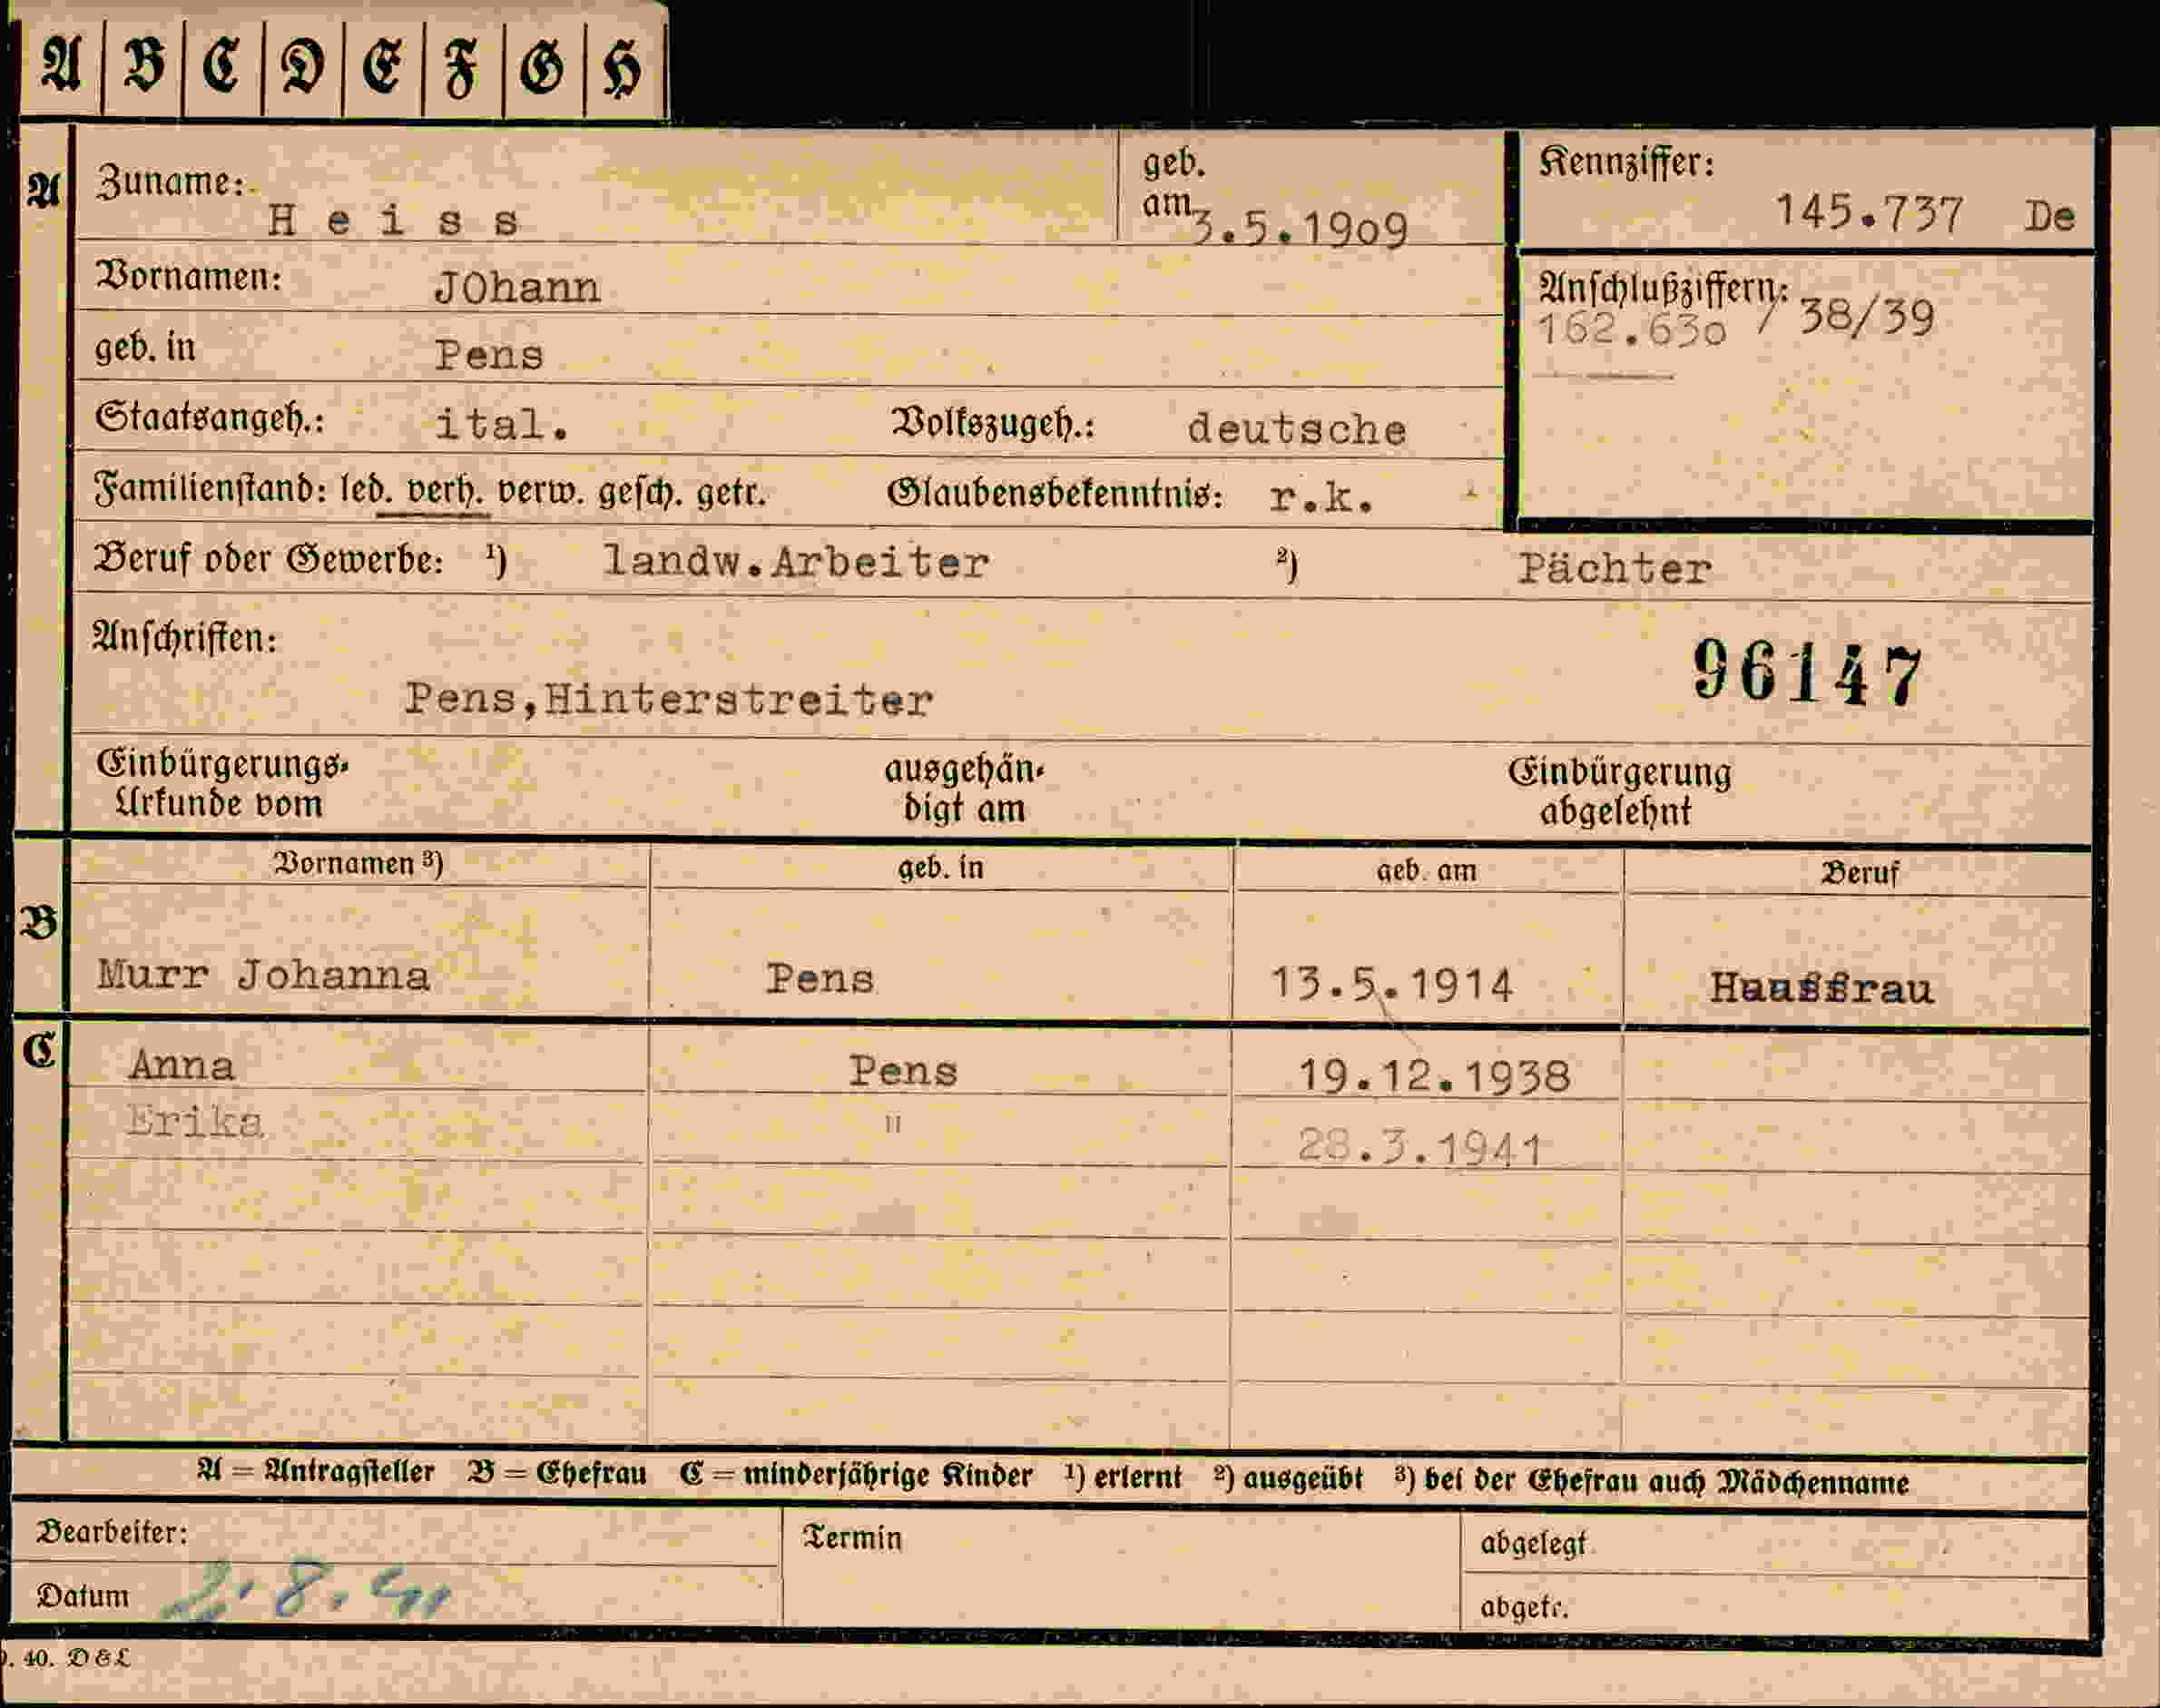 A B C D E F G H
A Zuname: H e i s s geb. am 3.5.1909 Kennziffer: 145.737 De
Vornamen: JOhann Anschlußziffern: 162.630 / 38/39
geb. in Pens
Staatsangeh.: ital. Volkszugeh.: deutsche
Familienstand: led. verh. verw. gesch. getr. Glaubensbekenntnis: r.k.
Beruf oder Gewerbe: ¹) landw.Arbeiter ²) Pächter
Anschriften:
96147
Pens,Hinterstreiter
Einbürgerungs- ausgehän- Einbürgerung
Urkunde vom digt am abgelehnt
Vornamen ³) geb. in geb. am Beruf
B
Murr Johanna Pens 13.5.1914 Hausfrau
C Anna Pens 19.12.1938
Erika " 28.3.1941
A = Antragsteller B = Ehefrau C = minderjährige Kinder ¹) erlernt ²) ausgeübt ³) bei der Ehefrau auch Mädchenname
Bearbeiter: Termin abgelegt
Datum 8. 41 abgetr.
40. D & L